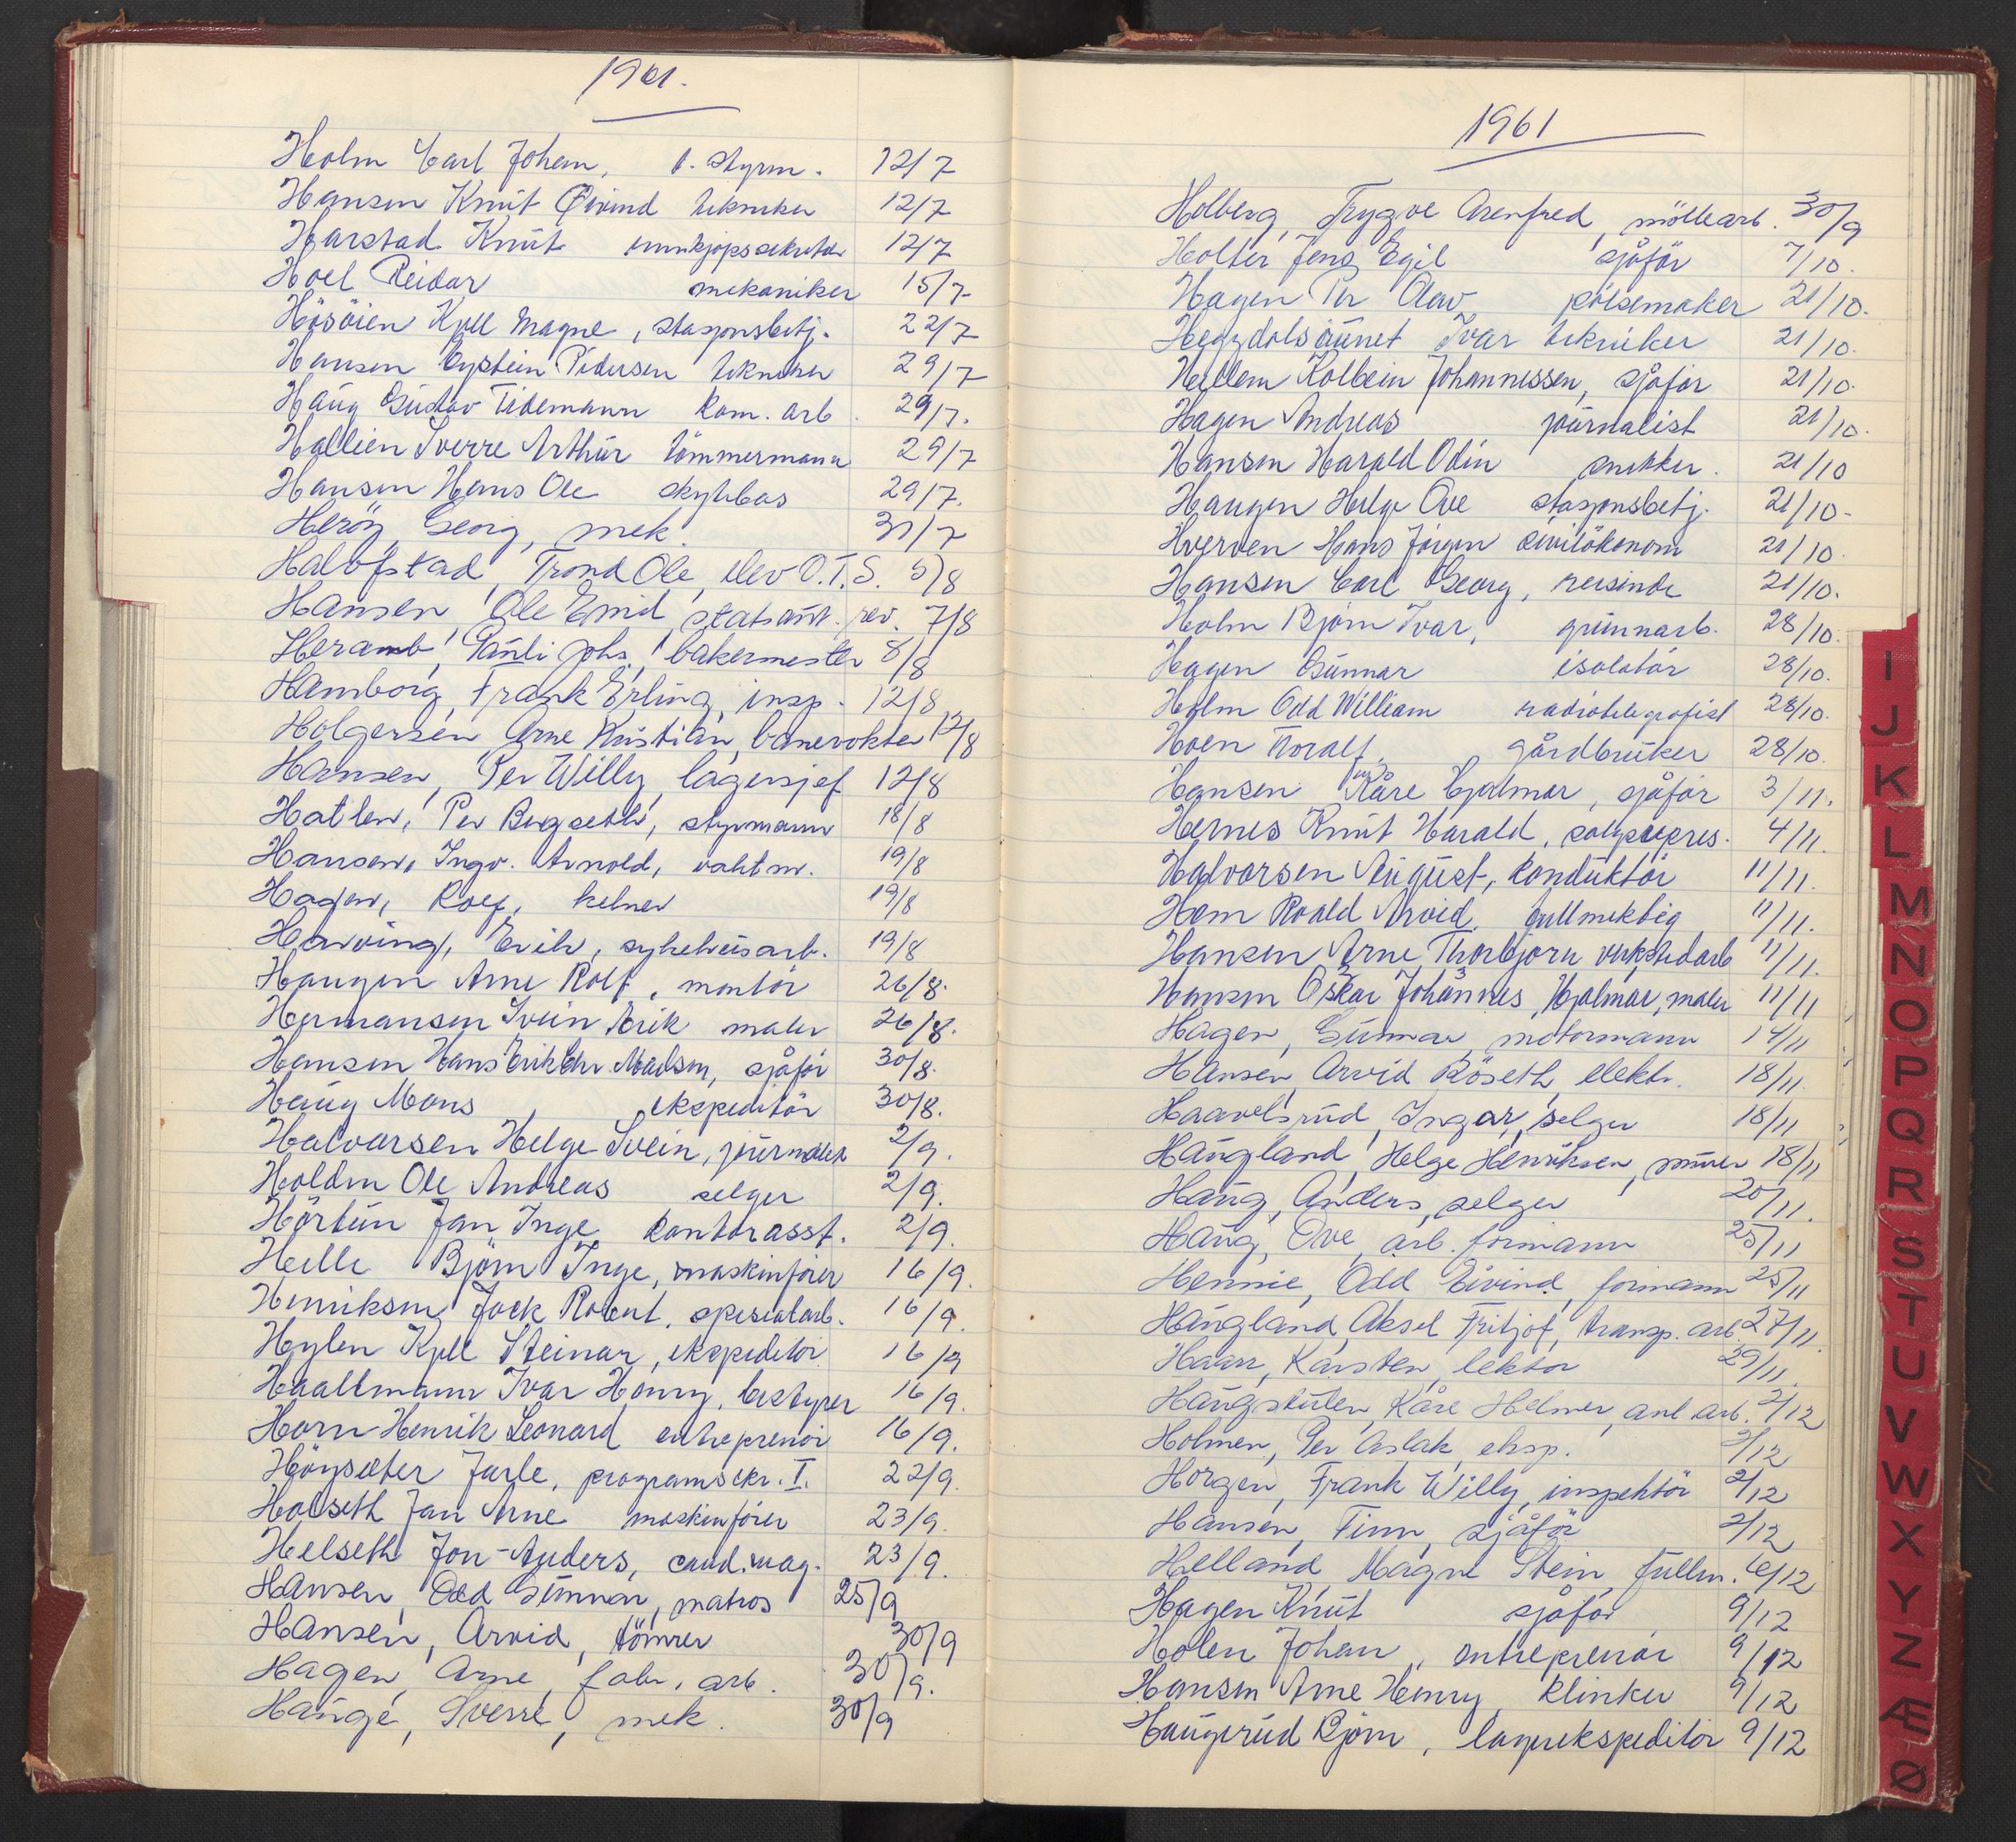 1961.
Holm Carl Johan, 1. styrm. 12/7
Hansen Knut Øivind tekniker 12/7
Harstad Knut innkjøpssekretær 12/7
Hoel Reidar mekaniker 15/7
Hösöien Kjell Magne, stasjonsbetj. 22/7
Hansen Öystein Pedersen tekniker 29/7
Haug Gustav Tidemann kom. arb. 29/7.
Hallien Sverre Arthur tömmermann 29/7
Hansen Hans Ole skytebas 29/7.
Heröy, Georg, mek. 31/7
Halvfstad, Trond Ole, elev O.T.S. 5/8
Hansen, Ole Emil, statsaut. rev. 7/8
Heramb, Pauli Johs, bakermester 8/8
Hamborg, Frank Erling, insp. 12/8
Holgersen, Arne Kristian, banevokter 12/8
Hansen, Per Willy, lagersjef 12/8
Hatlen, Per Bergseth, styrmann 18/8
Hansen, Ingv. Arnold, vaktm. 19/8
Hagen, Rolf, kelner 19/8
Harving, Erik, sykehusarb. 19/8
Haugen Arne Rolf, montör 26/8.
Hermansen Svein Erik maler 26/8.
Hansen Hans Erik Ehr Madsen, sjåför 30/8.
Haug Mons, ekspeditör 30/8.
Halvorsen Helge Svein, journalist 2/9.
Holden Ole Andreas selger 2/9.
Hörtun Jan Inge kontorasst. 2/9.
Helle Björn Inge, maskinförer 16/9.
Henriksen Jack Robert, spesialarb. 16/9.
Hylen Kjell Steinar, ekspeditör 16/9
Haaltmann Ivar Henry, bestyrer 16/9.
Horn Henrik Leonard entreprenör 16/9.
Höyseter Jarle, programsekr. I. 22/9.
Holseth Jan Arne maskinförer 23/9.
Helseth Jon-Anders, cand.mag. 23/9.
Hansen, Odd Gunnar, matros 25/9
Hansen, Arvid, tömrer 30/9
Hagen, Arne, fabr. arb. 30/9.
Hauge, Sverre, mek. 30/9
1961
Holberg, Trygve Arenfred, möllearb. 30/9
Holter Jens Egil sjåför 7/10.
Hagen Per Olav pölsemaker 21/10.
Hegydalsaunet Ivar tekniker 21/10.
Hellem Kolbein Johannessen, sjåför 21/10.
Hagen Andreas journalist 21/10.
Hansen Harald Odin snekker. 21/10
Haugen Helge Ove stasjonsbetj. 21/10.
Hverven Hans Jörgen siviløkonom 21/10.
Hansen Carl Georg, reisende 21/10.
Holm Björn Ivar, grunnarb. 28/10.
Hagen Gunnar isolatör 28/10.
Holm Odd William radiotelegrafist 28/10.
Hoen Toralf, gårdbruker 28/10.
Hansen Kåre Hjalmar, sjåför 3/11.
Hernes Knut Harald, salgsrepres. 4/11.
Halvorsen August, konduktör 11/11.
Hem Roald Arvid, fullmektig 11/11.
Hansen Arne Thorbjörn verkstedarb 11/11.
Hansen Oskar Johannes, Hjalmar, maler 11/11
Hagen, Gunnar motormann 14/11
Hansen, Arvid Röseth, elektr. 18/11.
Haavelsrud, Ingar, selger 18/11
Haugland, Helge Henriksen, murer 18/11
Haug, Anders, selger 20/11.
Haug, Ove, arb. formann 25/11
Hennie, Odd Eivind, formann 25/11
Haugland, Aksel Fritjof, transp. arb. 27/11.
Haarr, Karsten, lektor 29/11.
Haugstulen, Kåre Helmer, anl. arb. 2/12
Holmen, Per Aslak, eksp. 2/12
Horgen, Frank Willy, inspektör 2/12
Hansen, Finn, sjåför 2/12
Helland Magne Stein, fullm. 6/12
Hagen Knut sjåför 9/12
Holen Johan, entreprenör 9/12
Hansen Arne Henry klinker 9/12
Haugerud Björn, lagerekspeditör 9/12
I
J
K
L
M
N
O
P
Q
R
S
T
U
V
W
X
Y
Z
Æ
Ø